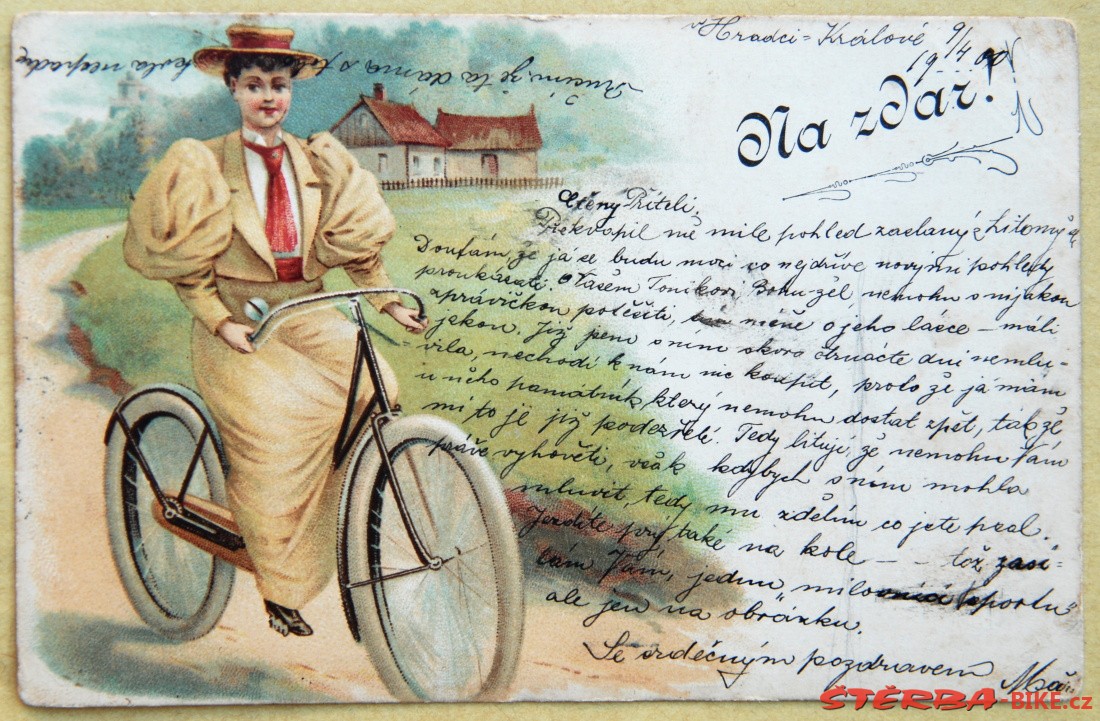 v Hradci-Králové 9/4
19 00
Na zdar!
Ručím, že ta dáma s toho kola nespadne
Ctěný Příteli,
Překvapil mě mile pohled zaslaný z Litomyšle
Doufám, že já se budu moci co nejdříve novými pohledy
proukázati. Vašem Toníkovi, Bohu-žel nemohu s nijakou
zprávičkou potěšiti, méně o jeho lásce – máli
jakou. Již jsem s ním skoro čtrnácte dní nemlu-
vila, nechodí k nám nic koupit, proto že já mám
u něho památník, který nemohu dostat zpět, takže
mi to je již podezřelé. Tedy lituji, že nemohu Vám
práve vyhověti, však kdybych s ním mohla
mluvit, tedy mu zdělím co jste psal.
Jezdíte prý také na kole – – tož zasí-
lám Vám, jednu „milovnici sportu"
ale jen na obrázku.
Se srdečným pozdravem
ŠTĚRBA-BIKE.cz